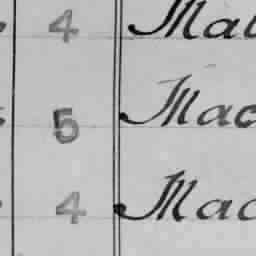 4 Mal
5 Mac
4 Mac